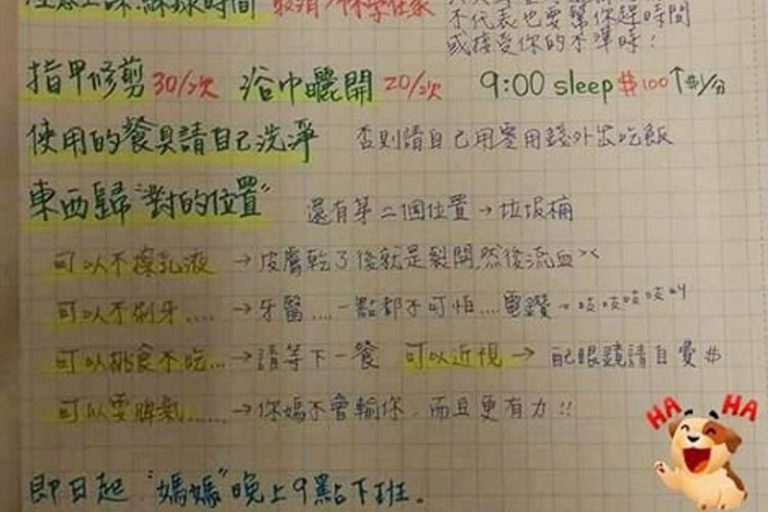 時間
不代表也要幫你趕時間
或接受你的不準時!
指甲修剪 30/次 浴巾曬開 20/次 9:00 sleep $100↑$1/分
使用的餐具請自己洗淨 否則請自己用零用錢外出吃飯
東西歸"對的位置" 還有第二個位置→垃圾桶
可以不擦乳液 →皮膚乾了後就是裂開,然後流血><
可以不刷牙..... →牙醫....一點都不可怕....電鑽~吱吱吱吱
可以挑食不吃... →請等下一餐 可以近視→ 配眼鏡請自費$
可以耍脾氣...... →你媽不會輸你,而且更有力!!
HA HA
即日起,"媽媽"晚上9點下班。